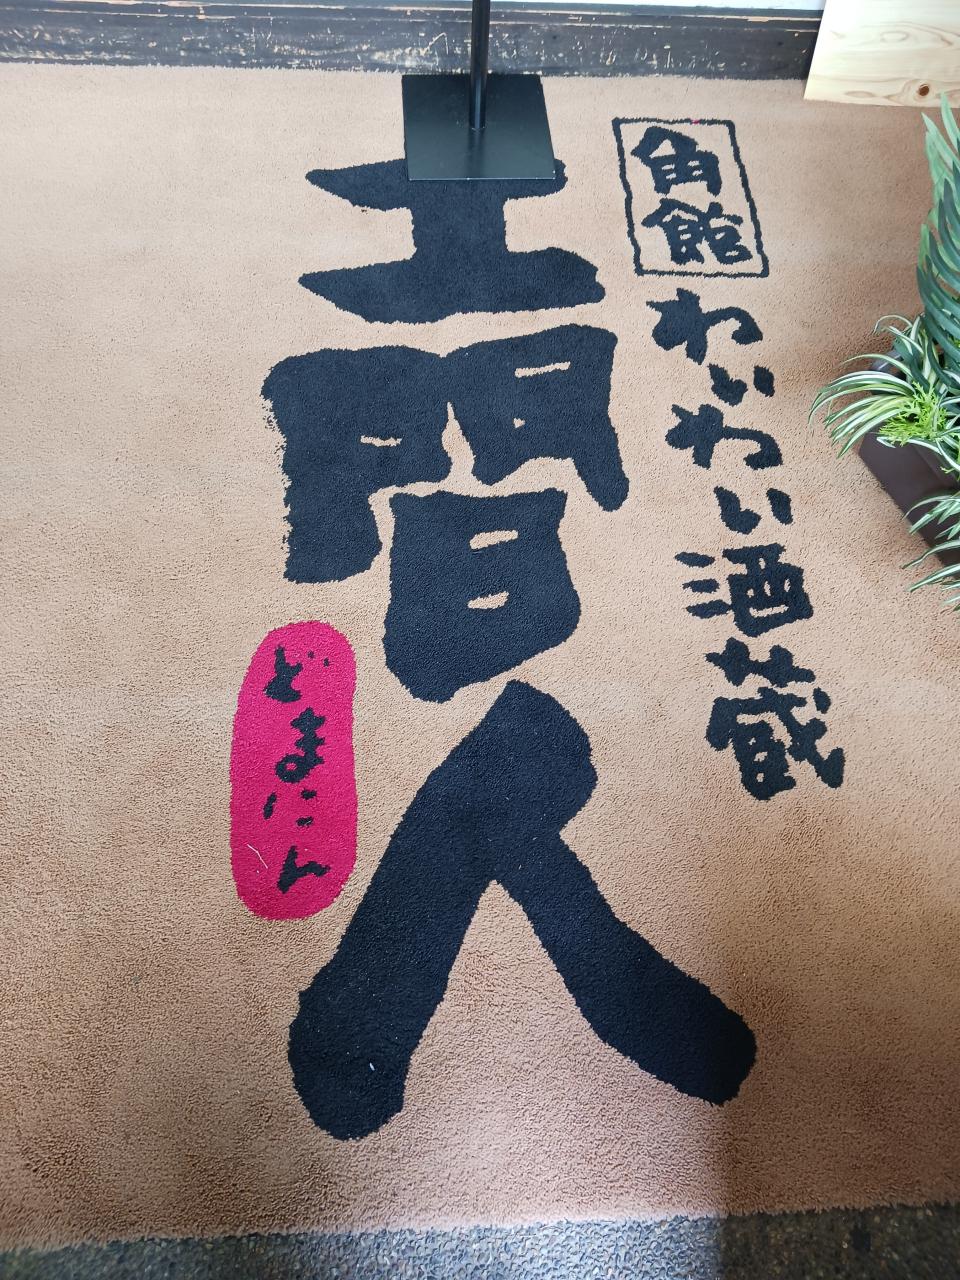 角館
わいわい酒蔵
土間人
どまにん